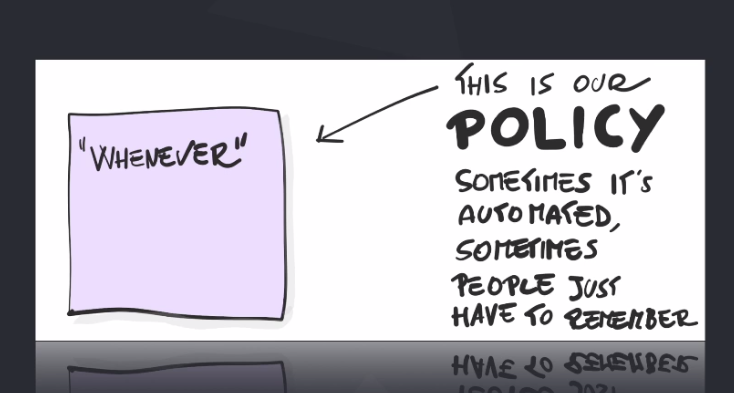 "WHENEVER"
THIS IS OUR
POLICY
SOMETIMES IT'S
AUTOMATED,
SOMETIMES
PEOPLE JUST
HAVE TO REMEMBER